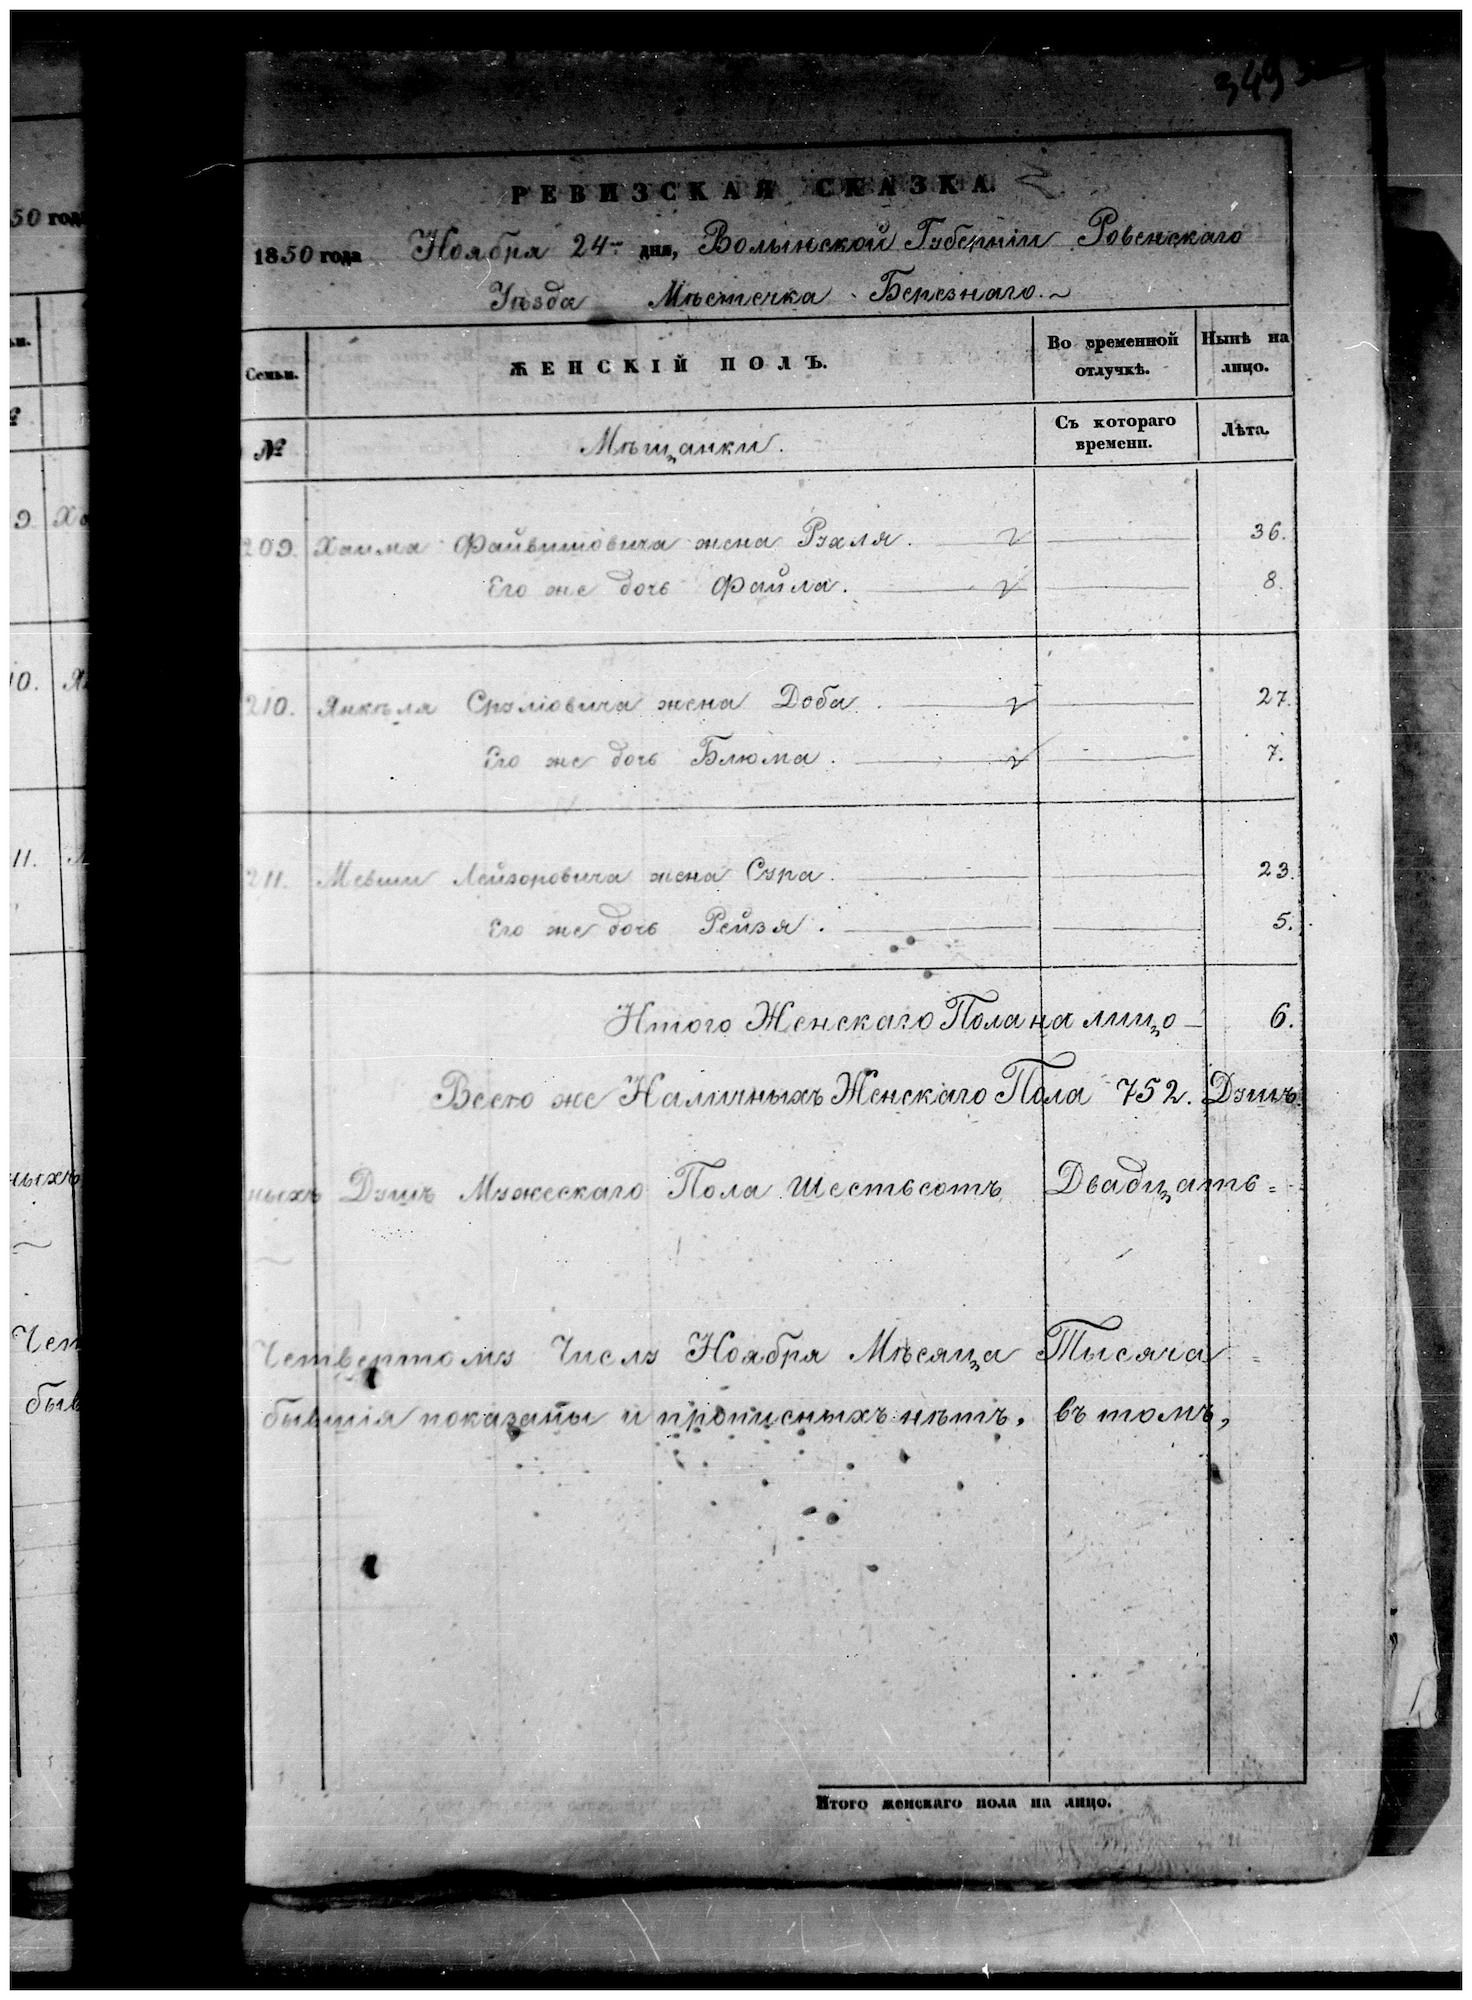 349
РЕВИЗСКАЯ СКАЗКА
1850 года Ноября 24 дня, Волынской Губерніи Ровенскаго
Уѣзда Мѣстечка Березнаго.
Семьи. ЖЕНСКІЙ ПОЛЪ. Во временной отлучкѣ. Нынѣ на лицо.
№ Мѣщанки. Съ котораго времени. Лѣта.
209. Хаима Файвишовича жена Рухля. 36.
Его же дочь Файла. 8.
210. Янкѣля Сруліовича жена Доба. 27.
Его же дочь Блюма. 7.
211. Мевши Лейзоровича жена Сура. 23.
Его же дочь Рейзя. 5.
Итого Женскаго Пола на лицо 6.
Всего же Наличныхъ Женскаго Пола 752. Душъ
ныхъ Душъ Мужескаго Пола шестьсотъ Двадцать =
Четвертому Числу Ноября Мѣсяца Тысяча =
бывшія показаны и прописныхъ нѣтъ, въ томъ,
Итого женскаго пола на лицо.
50 года
9 Ха
10. Ян
11.
ныхъ
Чет
быв